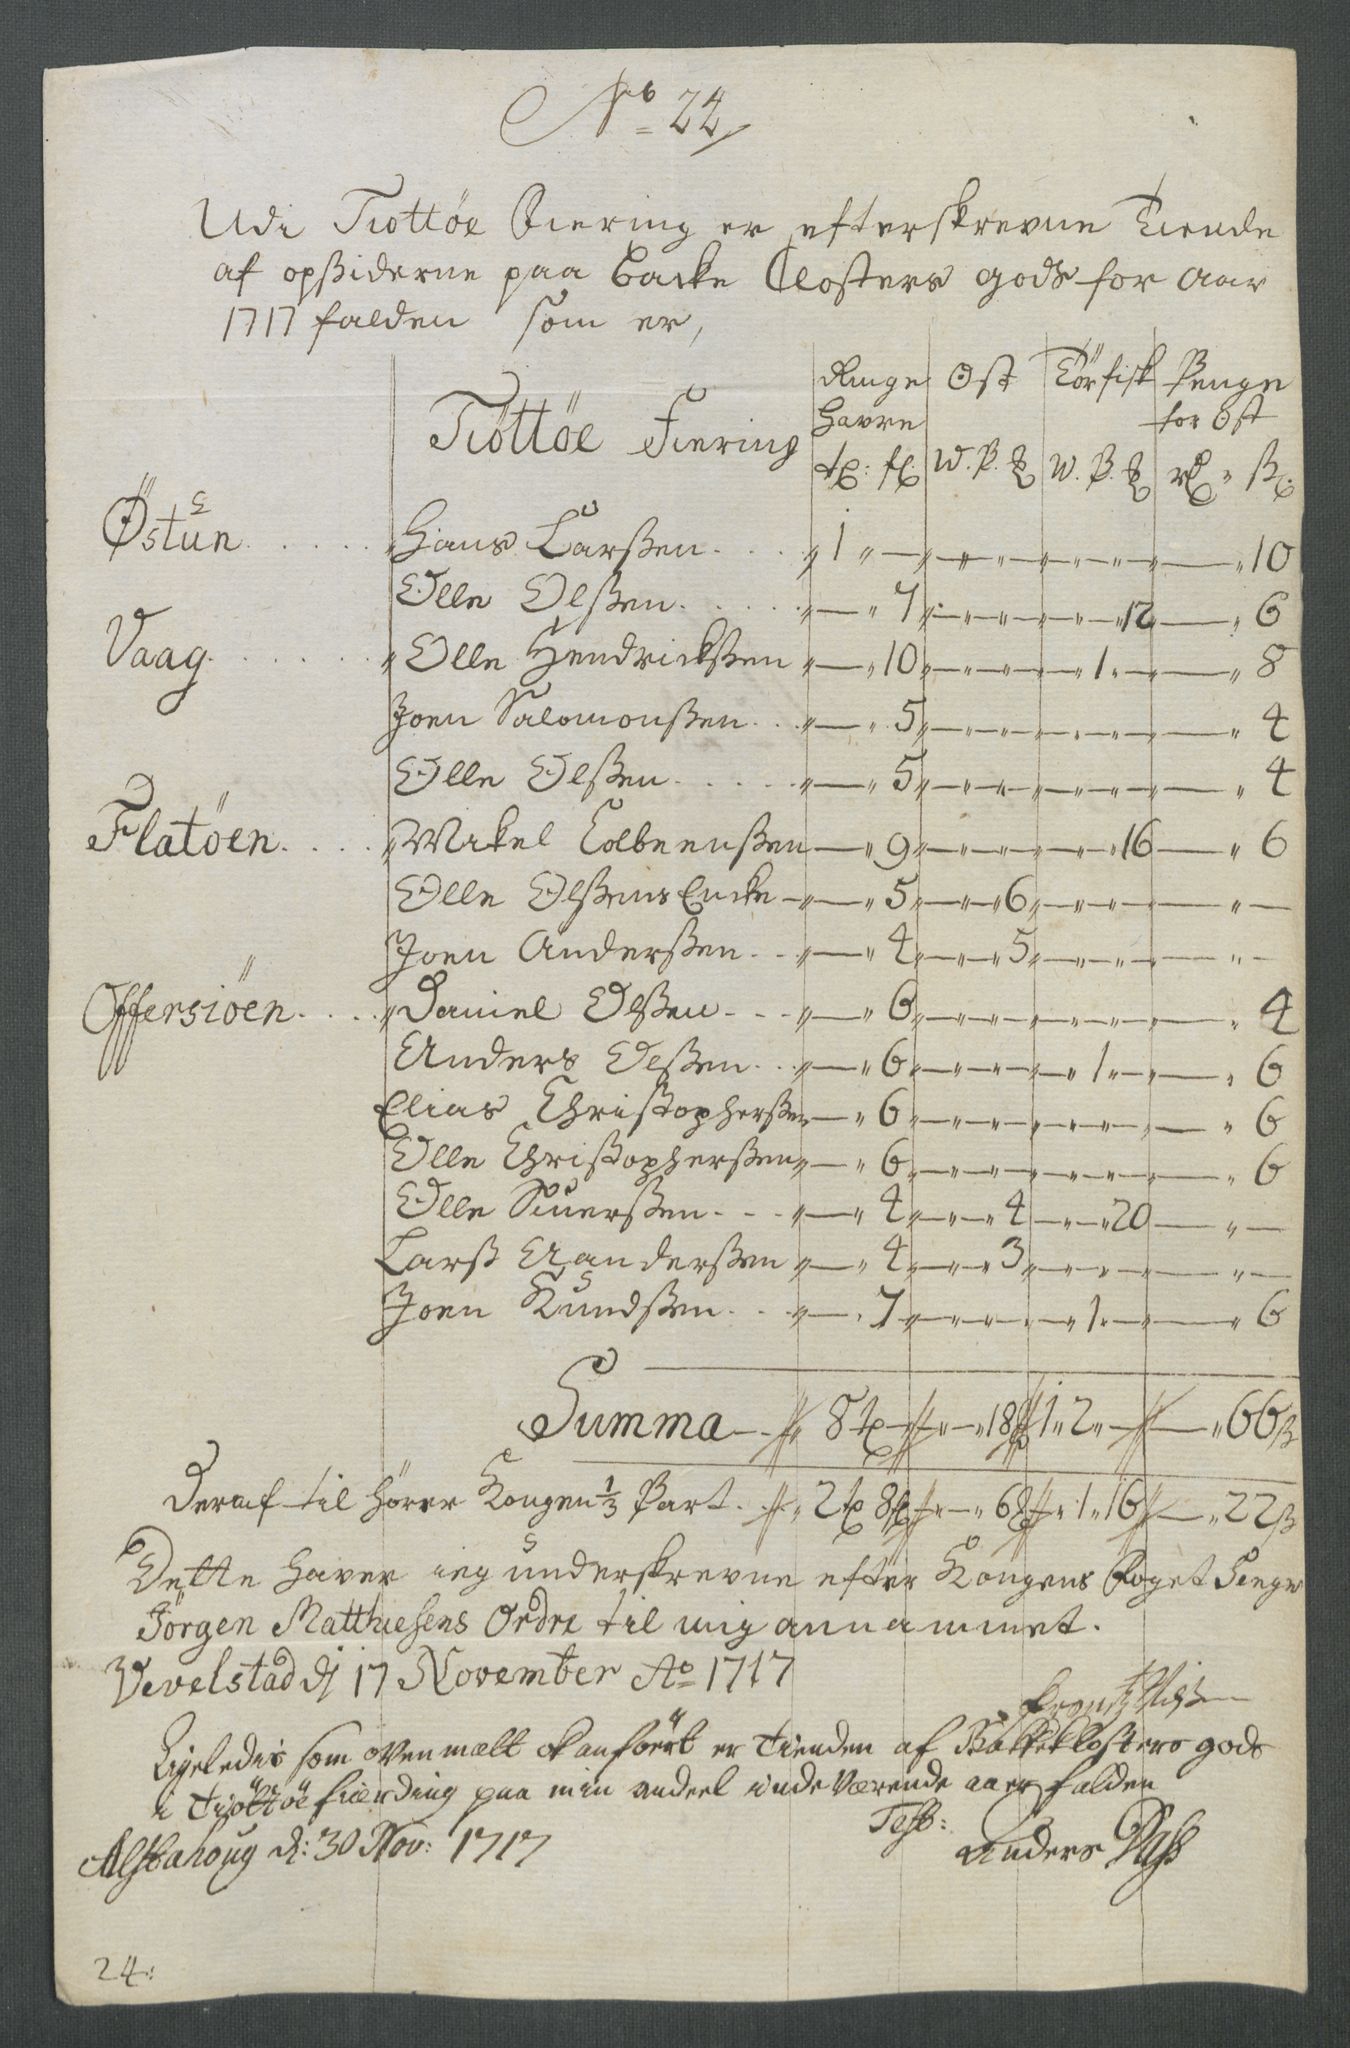 No 24
Udi Tiottöe Fiering er efterskrevne Tiende
af opsiderne paa Backe Closters gods for Aar
1717 falden som er,
Tiöttöe Fiering Ringe Havre Ost Törfisk Penge for Ost
W. P. W. P.
Østun . . . . . Hans Larssen . . . . 1 — 10
Olle Olssen . . . . . — 7 — 12 — 6
Vaag . . . . . . Olle Hendrickssen — 10 — 1 — 8
Joen Salomonssen . . . — 5 — 4
Olle Olssen . . . . . — 5 — 4
Flatöen . . . . Mikel Colbeenssen — 9 — 16 — 6
Olle Olssens Encke — 5 — 6 —
Joen Anderssen . . — 4 — 5 —
Offersiöen . . . . Daniel Olssen . . . — 6 — 4
Anders Olssen . . — 6 — 1 — 6
Elias Christopherssen — 6 — 6
Olle Christopherssen — 6 — 6
Olle Siuerssen . . . — 4 — 4 — 20 —
Larss Aanderssen — 4 — 3 —
Joen Knudssen . . — 7 — 1 — 6
Summa — 8 — 18 1 2 — 66 ß
Deraf til hörer Kongen 1/3 Part . . 2 8 — 6 — 1 16 — 22 ß
Dette haver ieg underskrevne efter Kongens Foget Seigr
Jörgen Matthiesens Ordre til mig annammet.
Vevelstad dj 17 November Ao 1717
Ligeledis som ovenmælt ok anfört er Tienden af Bakkeklosters gods
i Tiøttöe fierding paa min andeel inde værende aar falden
Test:
Alstahoug d: 30 Nov: 1717 Anders Dass
24: